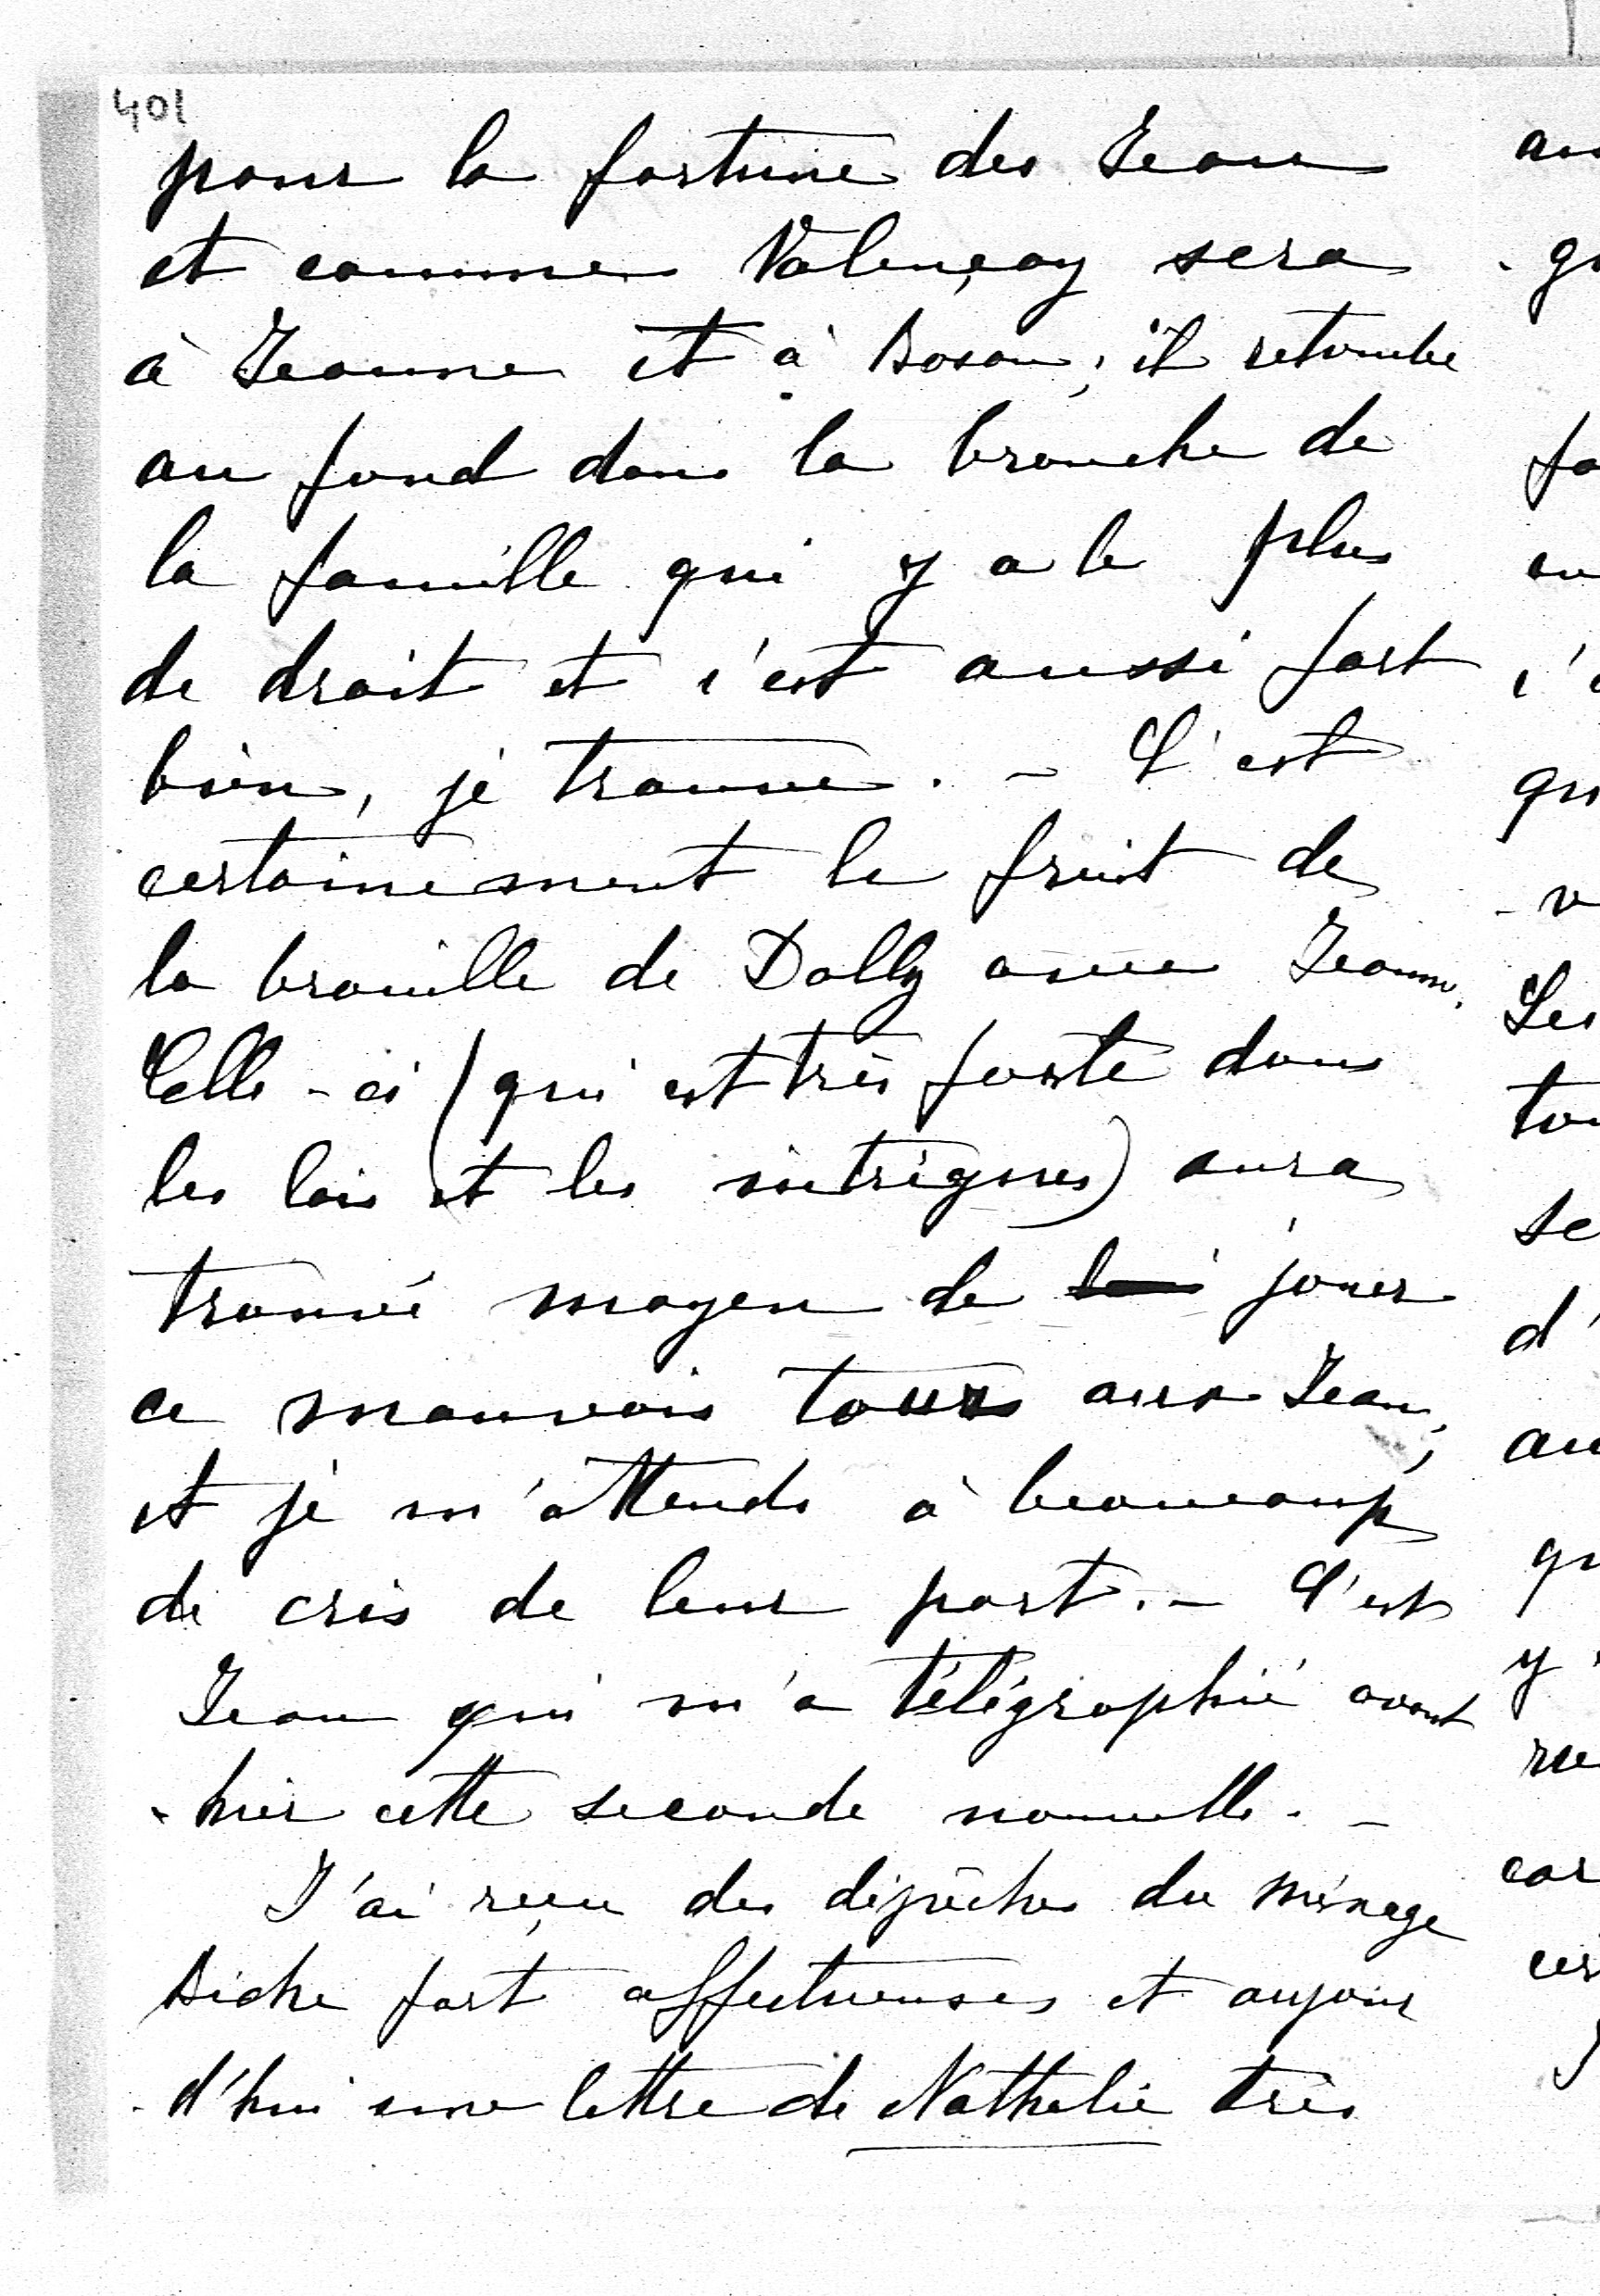 401
pour la fortune des Jean
et comme Valençay sera
à Jeanne et à Boson ; il retombe
au fond dans la branche de
la famille qui y a le plus
de droit et c'est aussi fort
bien, je trouve. – C'est
certainement le fruit de
la brouille de Dolly avec Jeanne.
Celle-ci (qui est très forte dans
les lois et les intrigues) aura
trouvé moyen de lui jouer
ce mauvais tour aux Jean ;
et je m'attends à beaucoup
de cris de leur part. – C'est
Jean qui m'a télégraphié avant
-hier cette seconde nouvelle. –
J'ai reçu des dépêches du ménage
Biche fort affectueuses et aujour
-d'hui une lettre de Nathalie très